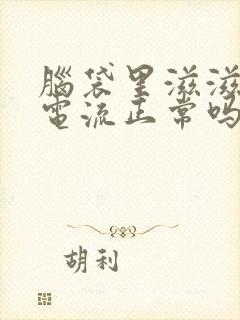 腦袋里滋滋
電流正常吗
胡利